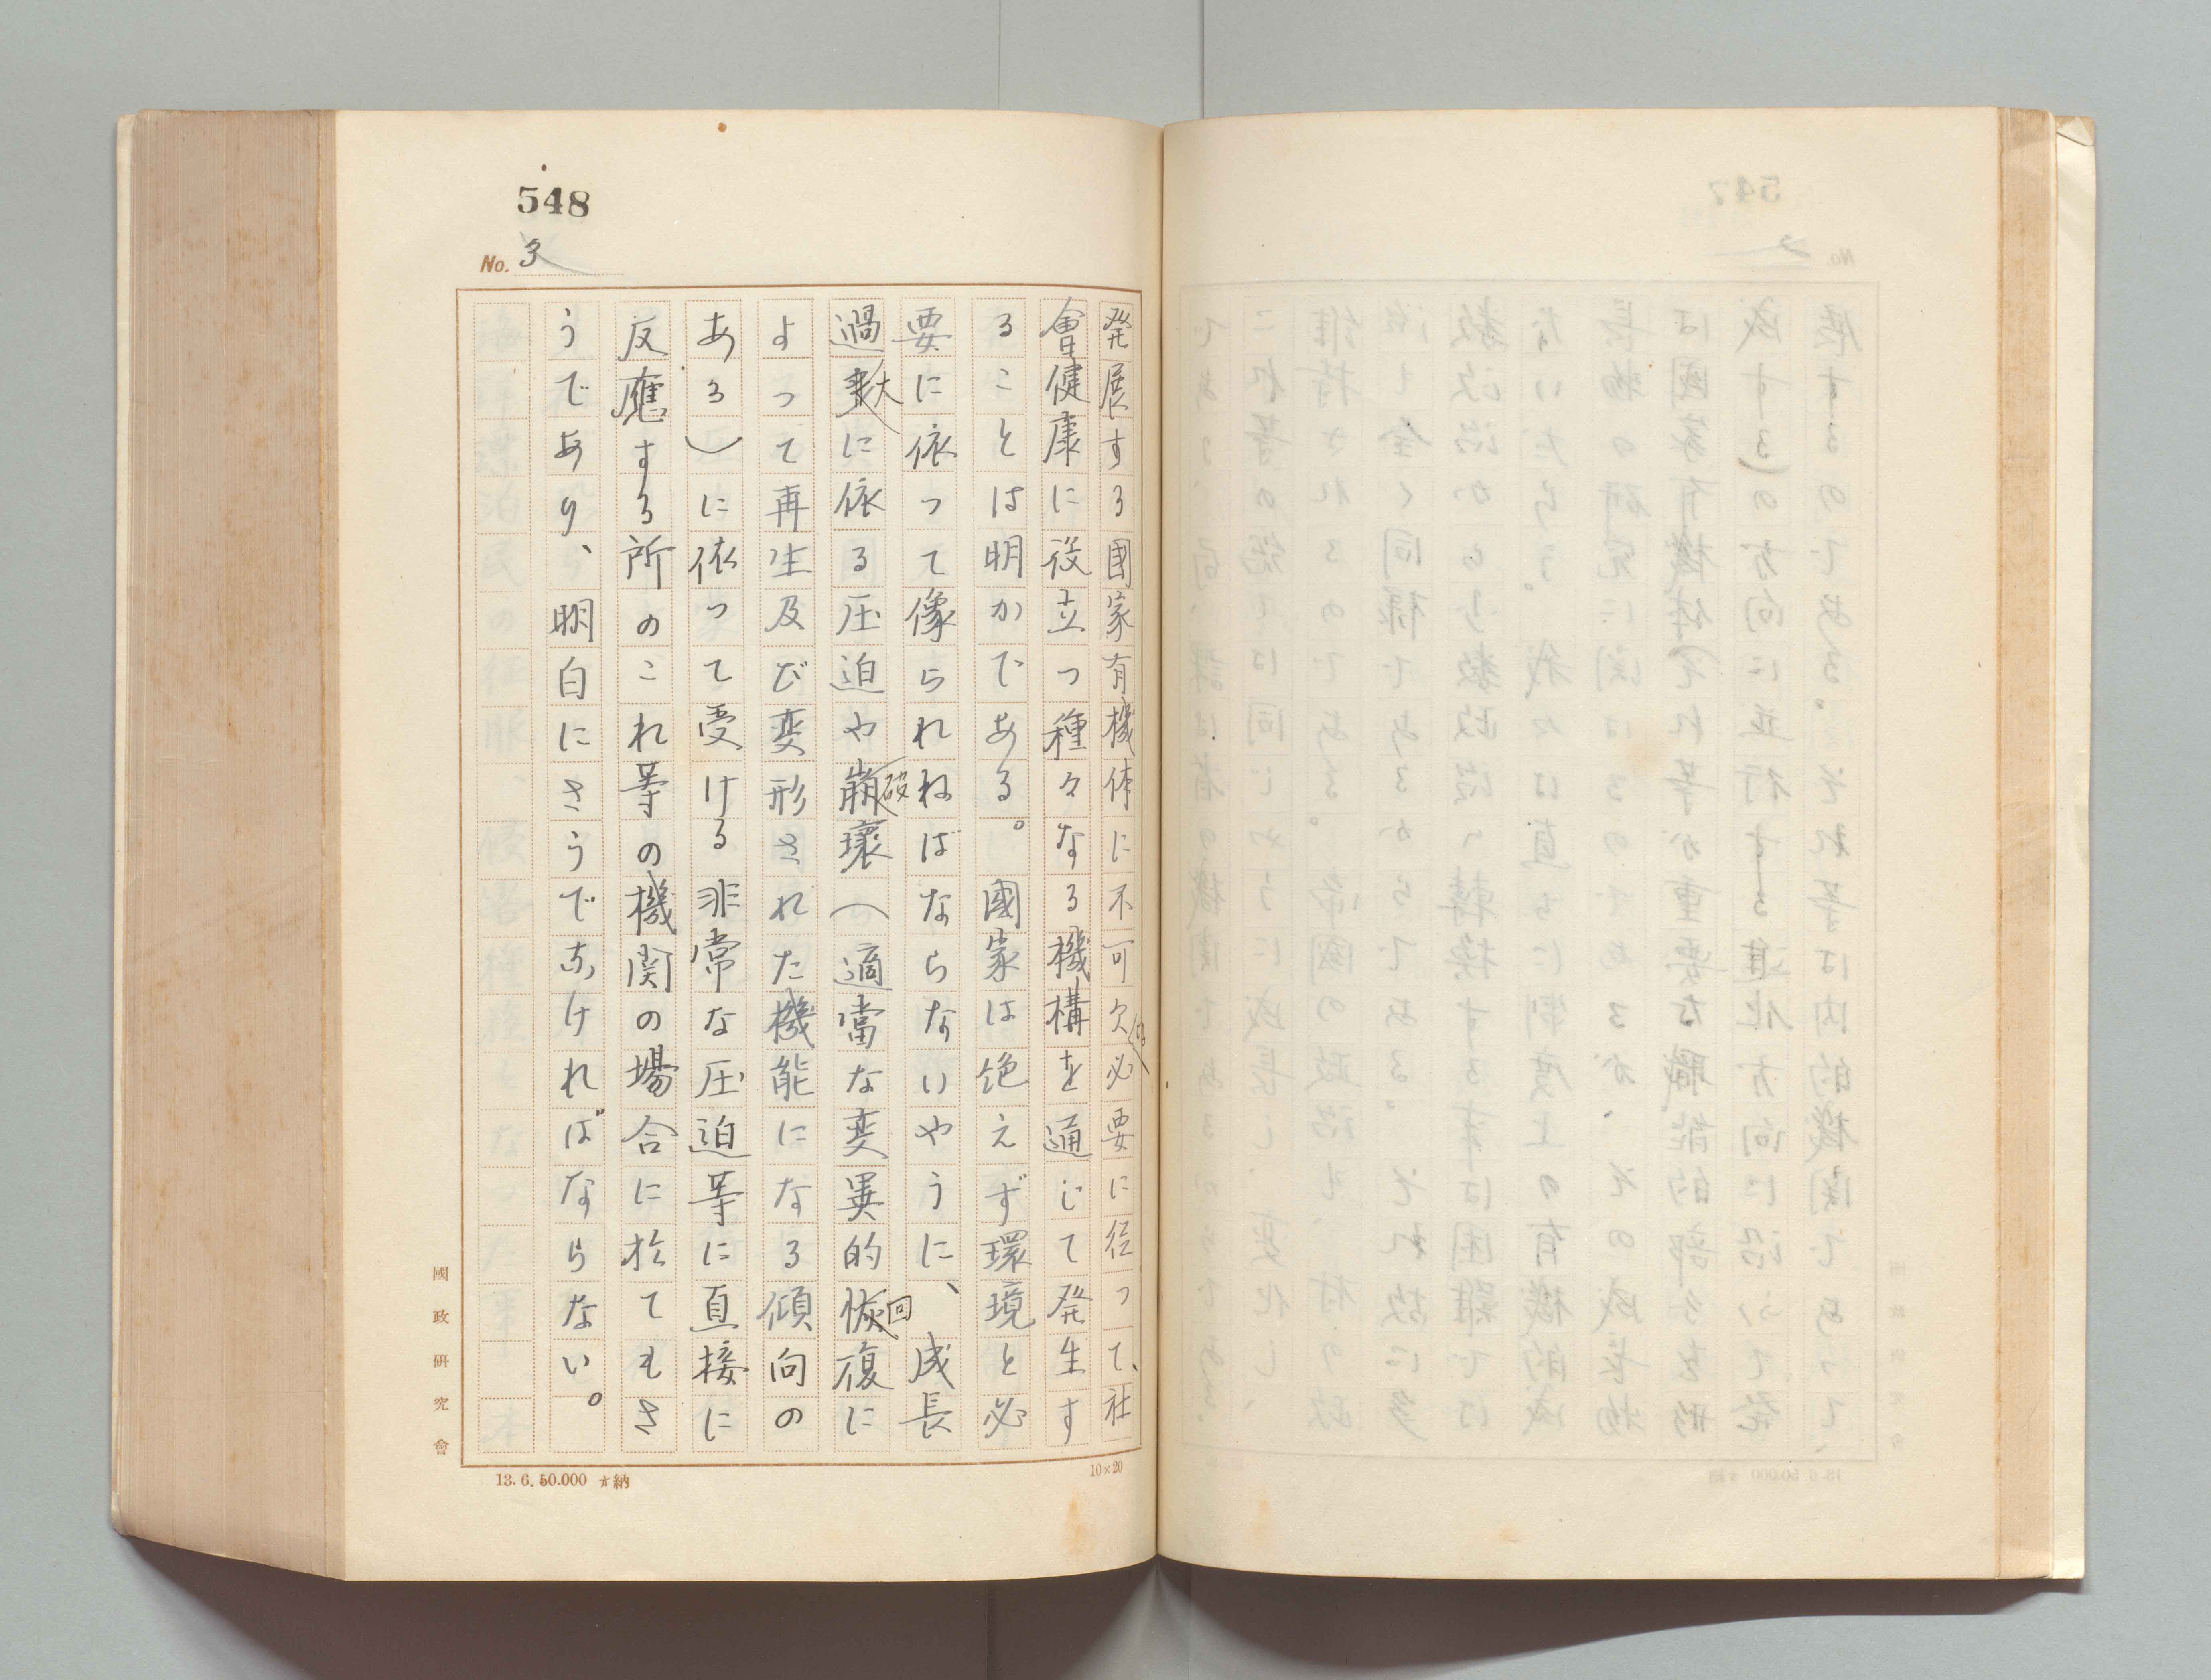 548
No. 3
発展する國家有機体に不可欠な必要に從って、社
會健康に役立つ種々なる機構を通じて発生す
ることは明かである。國家は絶えず環境と必
要に依って像られねばならないやうに、成長
過大に依る圧迫や破壞(適當な変異的回復に
よって再生及び変形された機能になる傾向の
ある)に依って受ける非常な圧迫等に直接に
反應する所のこれ等の機関の場合に於てもさ
うであり、明白にさうでなければならない。
國政研究會
13.6.50.000 納
10×20